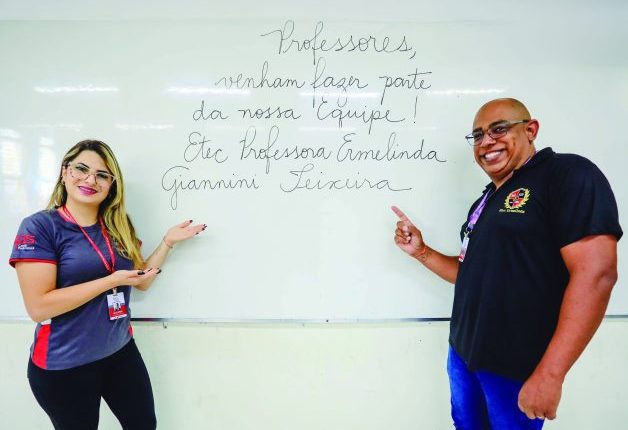 Professores,
venham fazer parte
da nossa Equipe!
Etec Professora Ermelinda
Giannini Teixeira